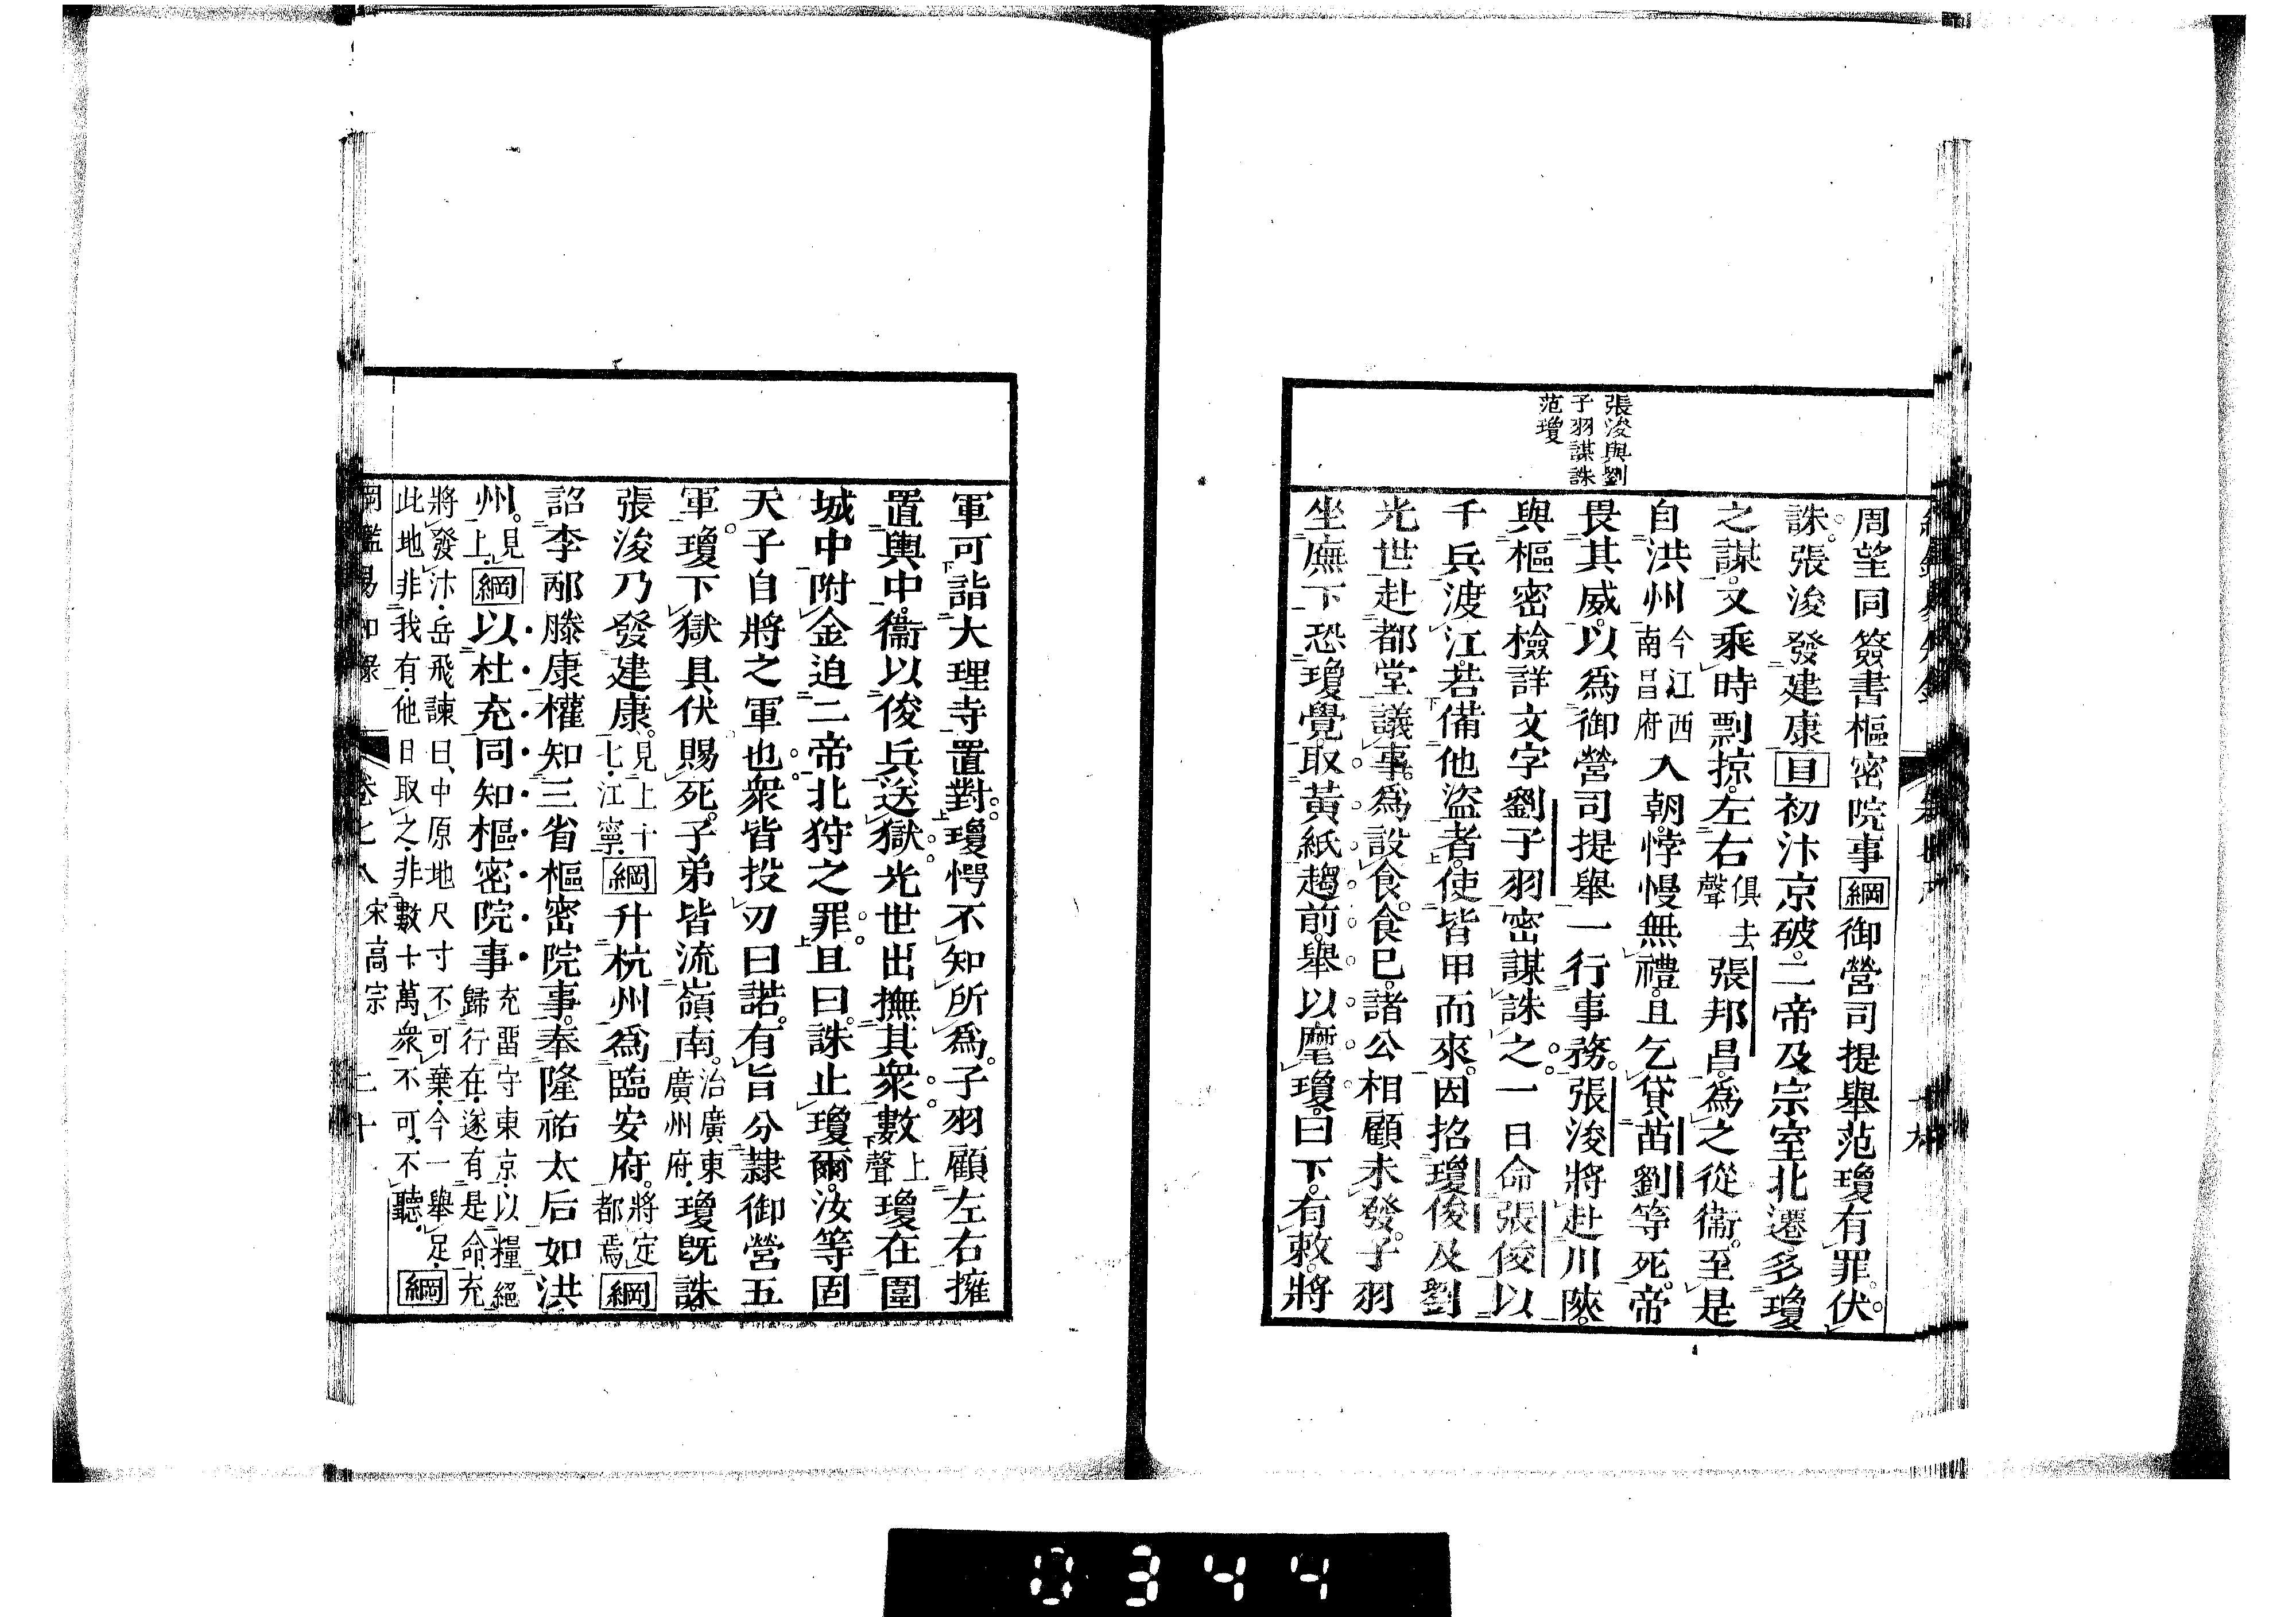 張浚與劉
子羽謀誅
范瓊
周望同簽書樞密院事綱御營司提舉范瓊有罪。伏
誅。張浚發建康目初汴京破。二帝及宗室北遷多瓊
之謀。又乘時剽掠。左右俱去聲張邦昌。爲之從衞。至是
自洪州今江西南昌府入朝。悖慢無禮。且乞貸苗劉等死。帝
畏其威。以爲御營司提舉一行事務。張浚將赴川陝。
與樞密檢詳文字劉子羽密謀誅之。一日命張俊以
千兵渡江。若備他盜者。使皆甲而來。因招瓊俊及劉
光世赴都堂議事。爲設食。食已。諸公相顧未發。子羽
坐廡下恐瓊覺。取黃紙趨前。舉以麾瓊。曰下。有敕。將
軍可詣大理寺置對。瓊愕不知所爲。子羽顧左右擁
置輿中。衞以俊兵送獄。光世出撫其衆。數上聲瓊在圍
城中附金迫二帝北狩之罪。且曰。誅止瓊爾。汝等固
天子自將之軍也。衆皆投刃曰諾。有旨分隸御營五
軍。瓊下獄具伏賜死。子弟皆流嶺南。治廣東廣州府。瓊旣誅
張浚乃發建康。見上十七江寧。綱升杭州爲臨安府。將定都焉綱
詔李邴滕康權知三省樞密院事。奉隆祐太后如洪
州。見上綱以杜充同知樞密院事充畱守東京。以糧絕歸行在。遂有是命。充
將發汴。岳飛諫曰、中原地尺寸不可棄。今一舉足。此地非我有。他日取之。非數十萬衆不可。不聽。綱
綱鑑易知錄 卷七八 宋高宗 二十